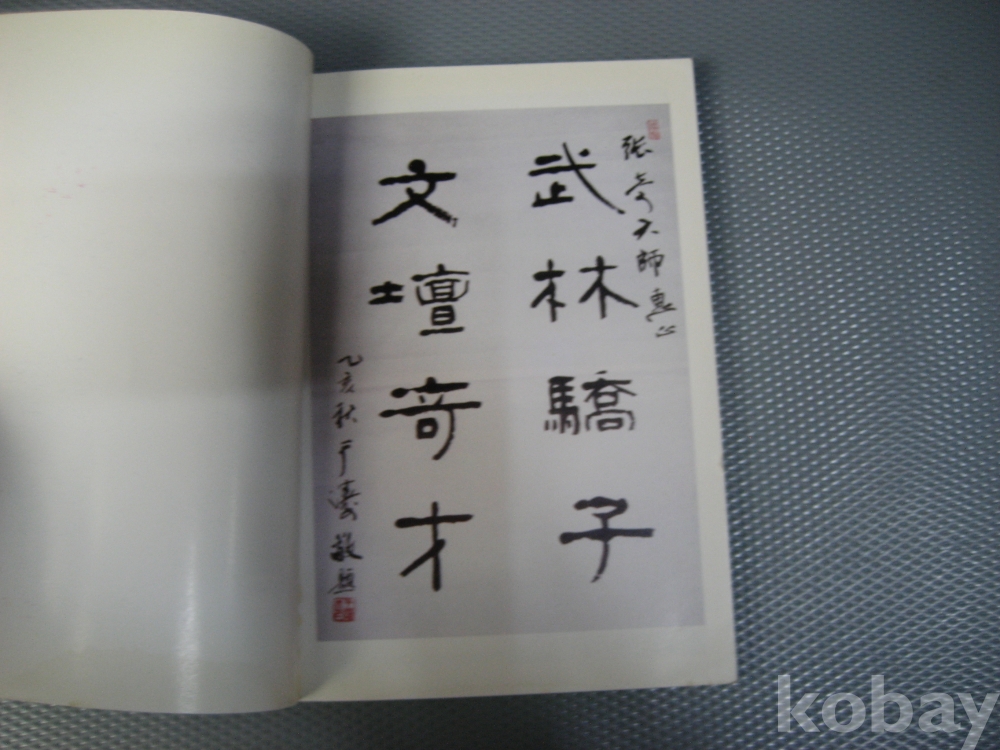 张奇大師惠正
武林驕子
文壇奇才
乙亥秋于濤敬題
kobay